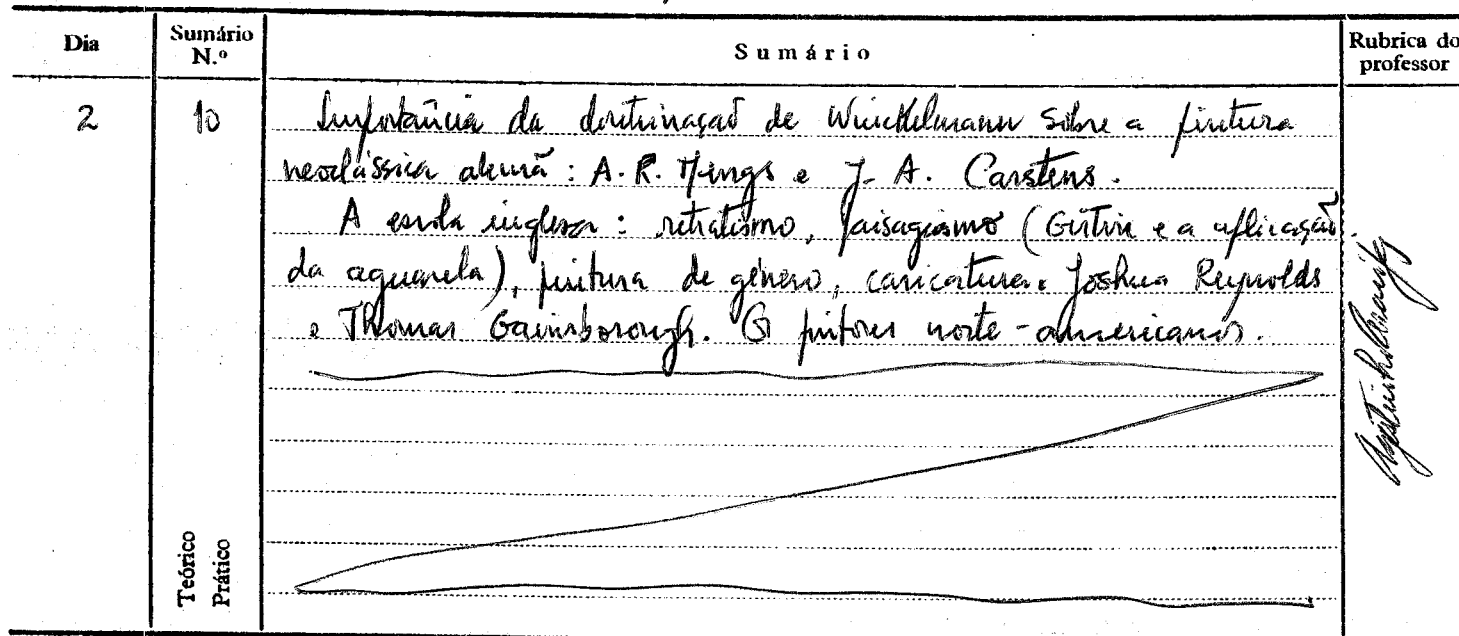 Dia
Sumário N.º
Sumário
Rubrica do professor
2
10
Importância da doutrinação de Winckelmann sôbre a pintura
neoclássica alemã : A. R. Mengs e J. A. Carstens.
A escola inglesa : retratismo, paisagismo (Girtin e a aplicação
da aguarela), pintura de género, caricatura. Joshua Reynolds
e Thomas Gainsborough. Os pintores norte-americanos.
Teórico
Prático